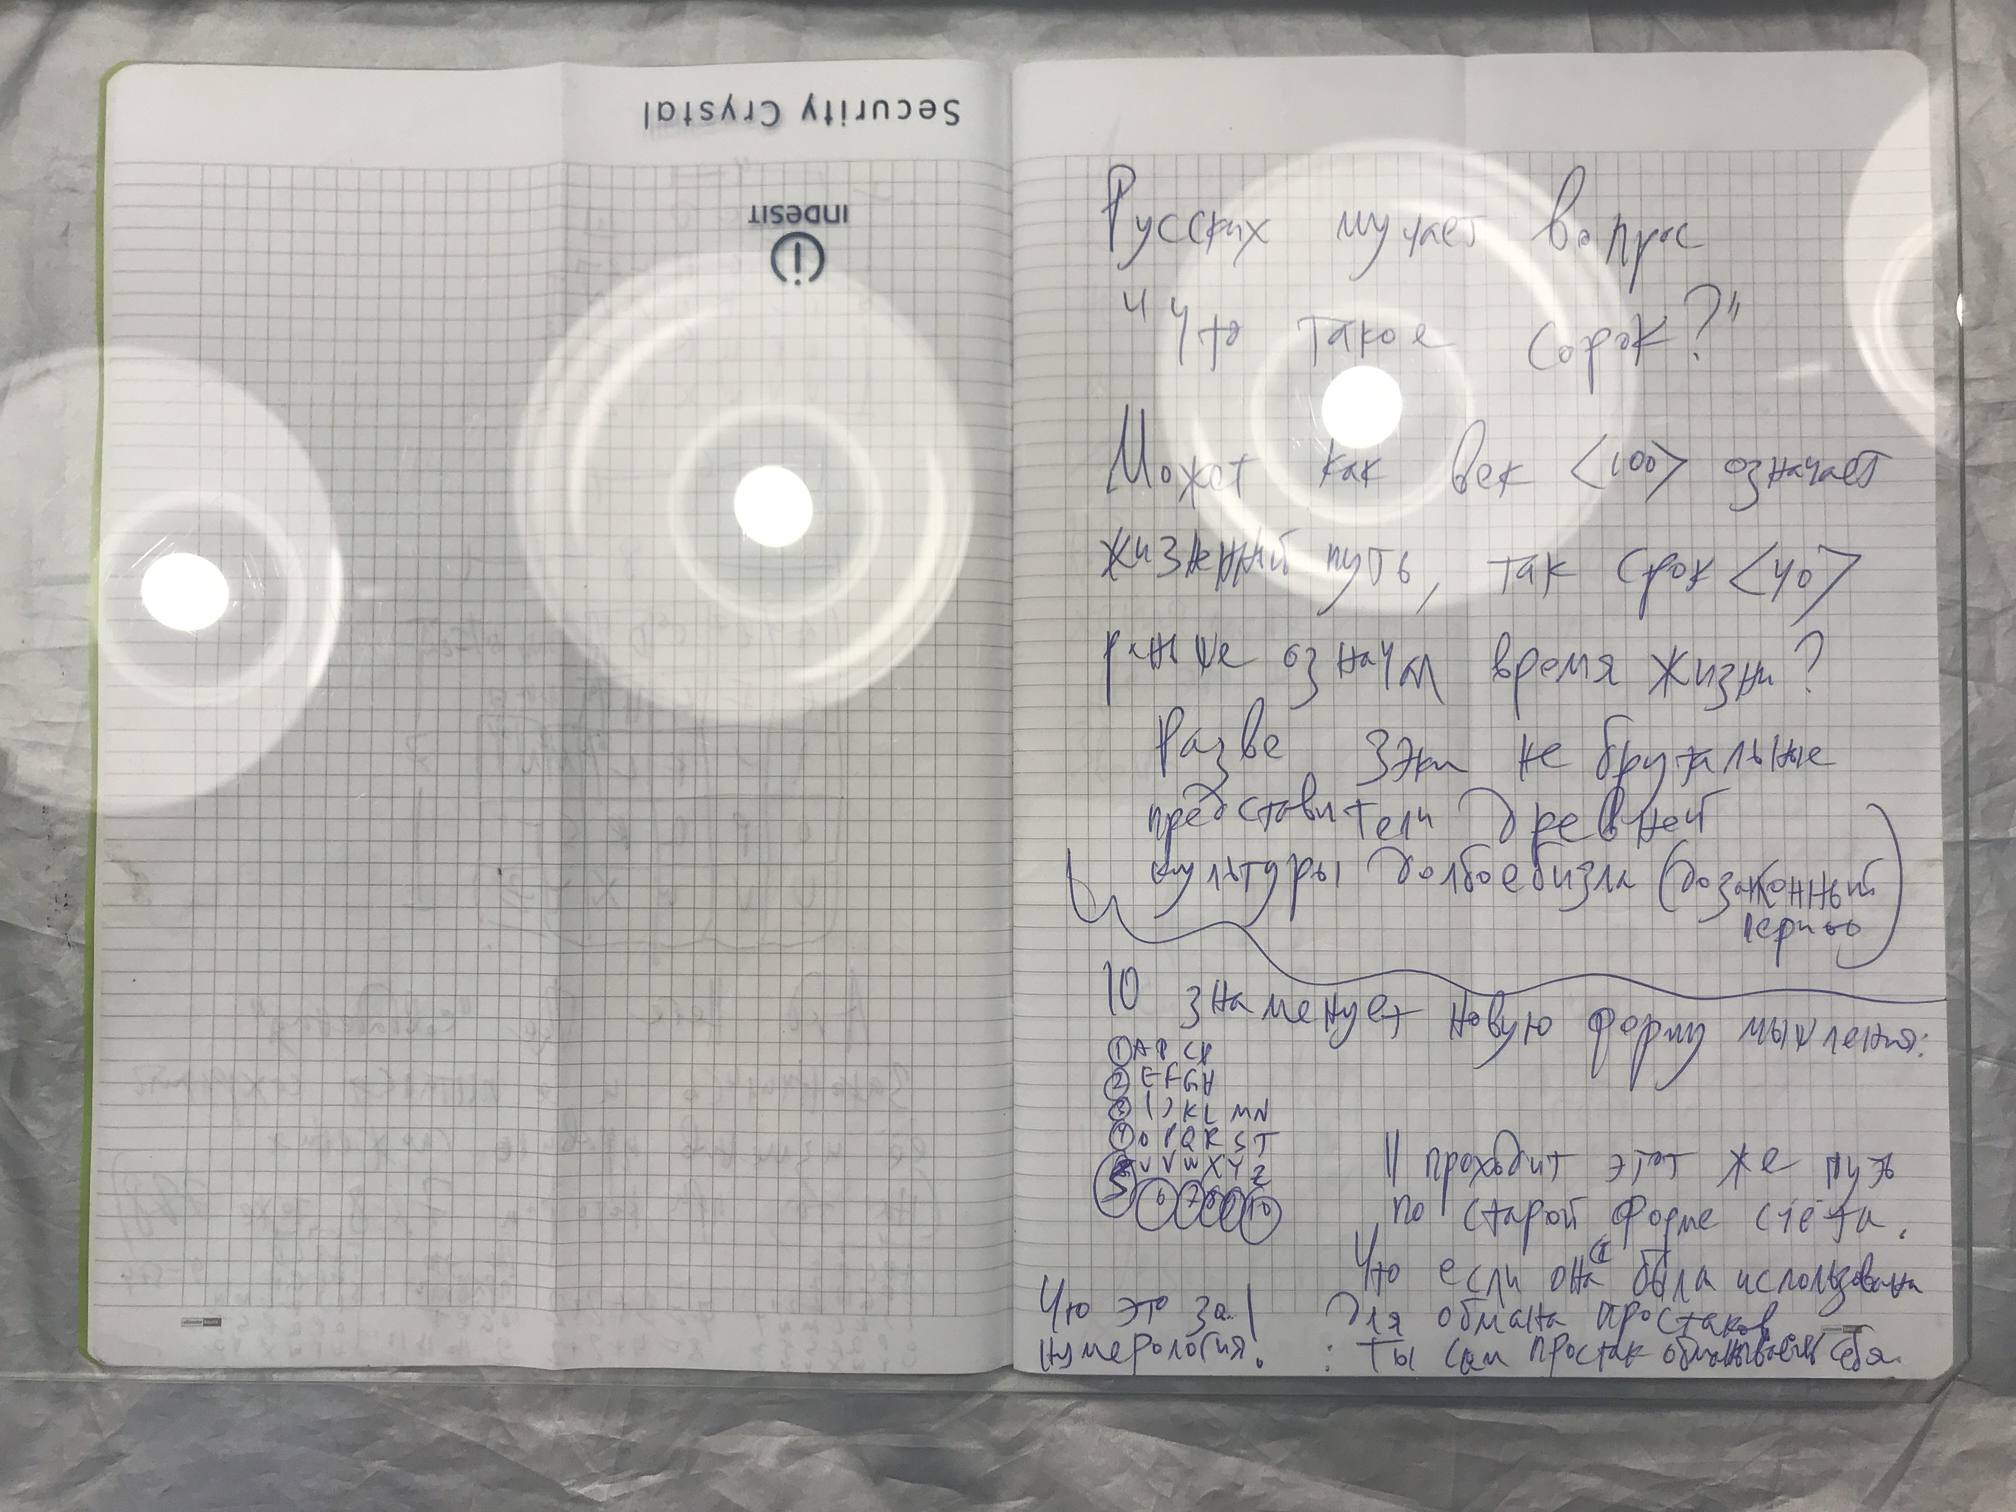 Security Crystal
INDESIT
Русских мучает вопрос
"Что такое сорок?"
Может как век <100> означает
жизненный путь, так срок <40>
раньше означал время жизни?
Разве зэки не брутальные
представители древней
культуры долбоебизма (дозаконный
период)
10 знаменует новую форму мышления:
① AB CD
② EF GH
③ IJ KL MN
④ OP QR ST
5 UV WX YZ
⑥ ⑦ ⑧ ⑨ ⑩
11 проходит этот же путь
по старой форме счёта.
Что если она была использована
для обмана простаков
: Ты сам простак обманываешь себя.
Что это за
нумерология.